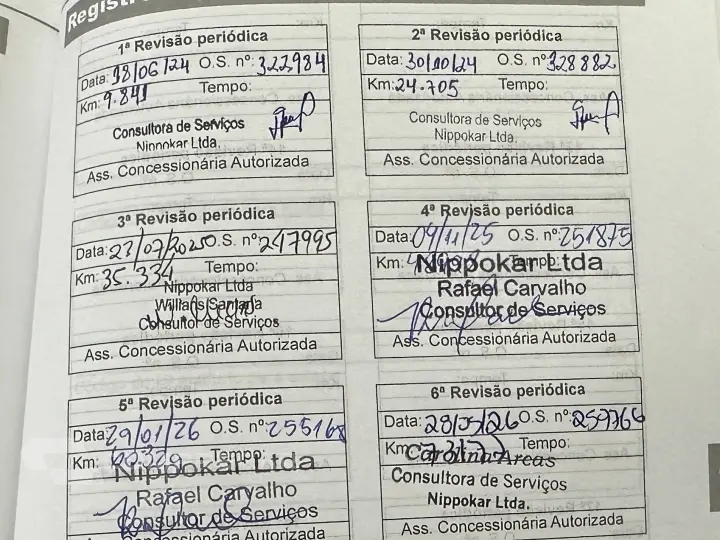 Registr
1ª Revisão periódica
Data: 18/06/24 O.S. nº: 322984
Km: 9.841 Tempo:
Consultora de Serviços
Nippokar Ltda.
Ass. Concessionária Autorizada
2ª Revisão periódica
Data: 30/10/24 O.S. nº: 328882
Km: 24.705 Tempo:
Consultora de Serviços
Nippokar Ltda.
Ass. Concessionária Autorizada
3ª Revisão periódica
Data: 23/07/2025 O.S. nº: 247995
Km: 35.334 Tempo:
Nippokar Ltda
Willians Santana
Consultor de Serviços
Ass. Concessionária Autorizada
4ª Revisão periódica
Data: 04/11/25 O.S. nº: 251875
Km: Tempo:
Nippokar Ltda
Rafael Carvalho
Consultor de Serviços
Ass. Concessionária Autorizada
5ª Revisão periódica
Data: 29/01/26 O.S. nº: 255168
Km: Tempo:
Nippokar Ltda
Rafael Carvalho
Consultor de Serviços
Ass. Concessionária Autorizada
6ª Revisão periódica
Data: 28/05/26 O.S. nº: 259766
Km: Tempo:
Carolina Arcas
Consultora de Serviços
Nippokar Ltda.
Ass. Concessionária Autorizada